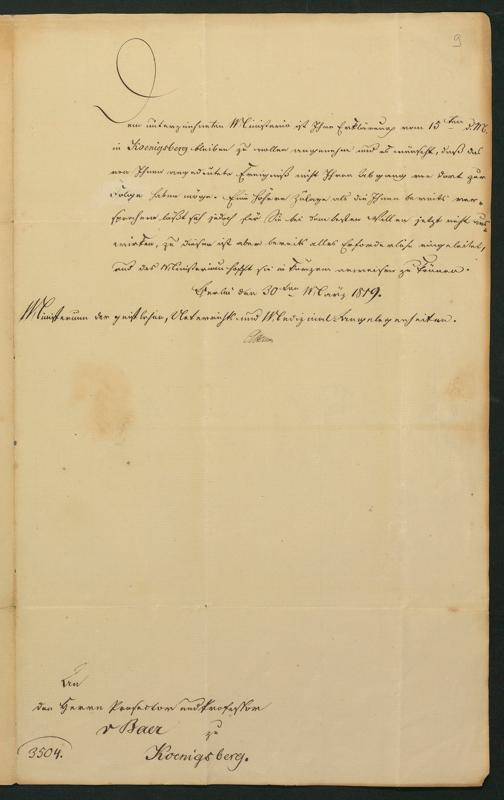 9
Dem unterzeichneten Ministerio ist Ihre Erklärung vom 15ten d. M.
in Koenigsberg bleiben zu wollen angenehm und es wünscht, daß das
von Ihnen angedeutete Ereigniß nicht Ihren Abgang von dort zur
Folge haben möge. Eine höhere Zulage als die Ihnen bereits ver-
sprochene läßt sich jedoch für Sie bei dem besten Willen jetzt nicht aus
wirken, zu dieser ist aber bereits alles Erforderliche eingeleitet,
und das Ministerium hofft sie in Kurzem anweisen zu können.
Berlin den 30ten März 1819.
Ministerium der geistlichen, Unterrichts- und Medizinal-Angelegenheiten.
An
den Herrn Prosector und Professor
v Baer zu
3504. Koenigsberg.